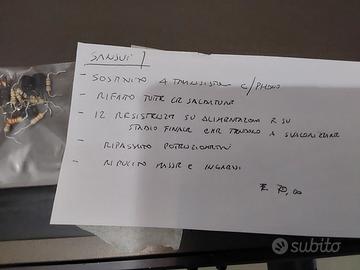 SANSUI 7
- SOSTITUITO 4 TRANSISTOR C/PHONO
- RIFATTO TUTTE LE SALDATURE
- 12 RESISTENZE SU ALIMENTAZIONE E SU
STADIO FINALE CHE TENDONO A
- RIPASSATO POTENZIOMETRI
- RIPULITO MASSE E INGRANAGGI
€ 70,00
subito